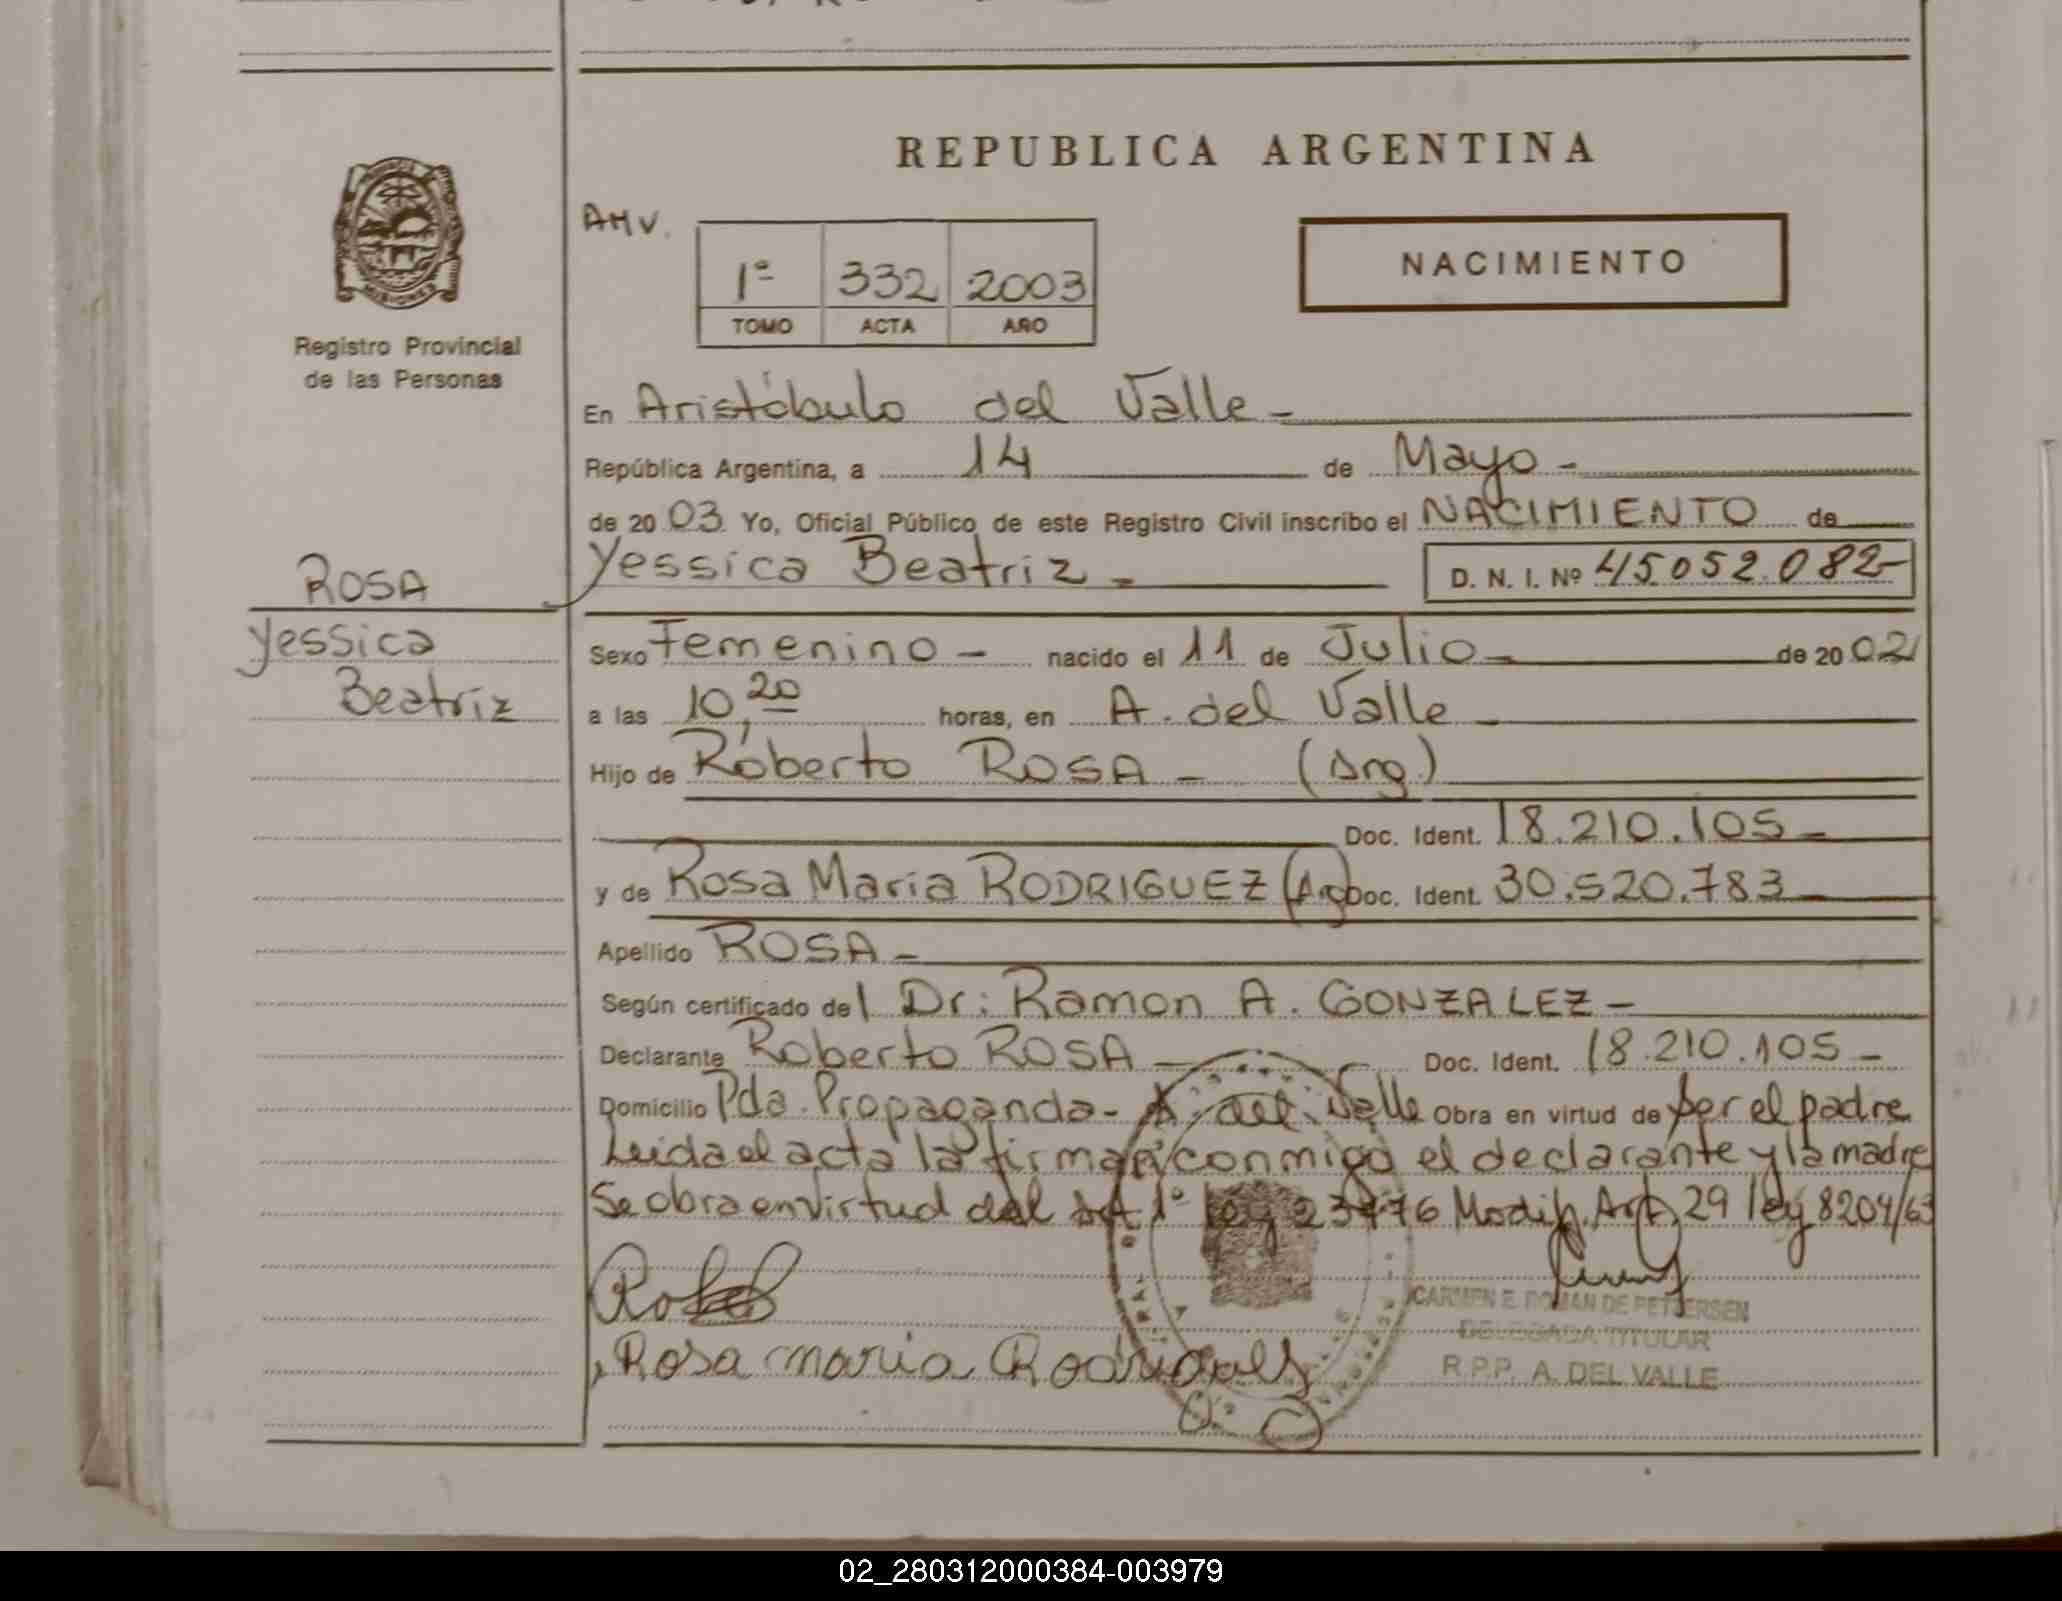 REPUBLICA ARGENTINA
PROVINCIA
MISIONES
Registro Provincial
de las Personas
AMV.
1º 332 2003
TOMO ACTA AÑO
NACIMIENTO
En Aristóbulo del Valle -
República Argentina, a 14 de Mayo -
de 20 03 Yo, Oficial Público de este Registro Civil inscribo el NACIMIENTO de
Yessica Beatriz - D. N. I. Nº 45.052.082-
ROSA
Yessica
Beatriz
Sexo Femenino - nacido el 11 de Julio - de 20 02
a las 10,20 horas, en A. del Valle -
Hijo de Roberto ROSA - (Arg.)
Doc. Ident. 18.210.105 -
y de Rosa Maria RODRIGUEZ (Arg) Doc. Ident. 30.520.783 -
Apellido ROSA -
Según certificado del Dr: Ramon A. GONZALEZ -
Declarante Roberto ROSA - Doc. Ident. 18.210.105 -
Domicilio Pda. Propaganda - A. del Valle Obra en virtud de ser el padre
Leida el acta la firman conmigo el declarante y la madre
Se obra en virtud del Art 1º ley 23776 Modif. Art. 29 ley 8204/63
Rosa maria Rodriguez
CARMEN E. ROMAN DE PETTERSEN
DELEGADA TITULAR
R.P.P. A. DEL VALLE
02_280312000384-003979